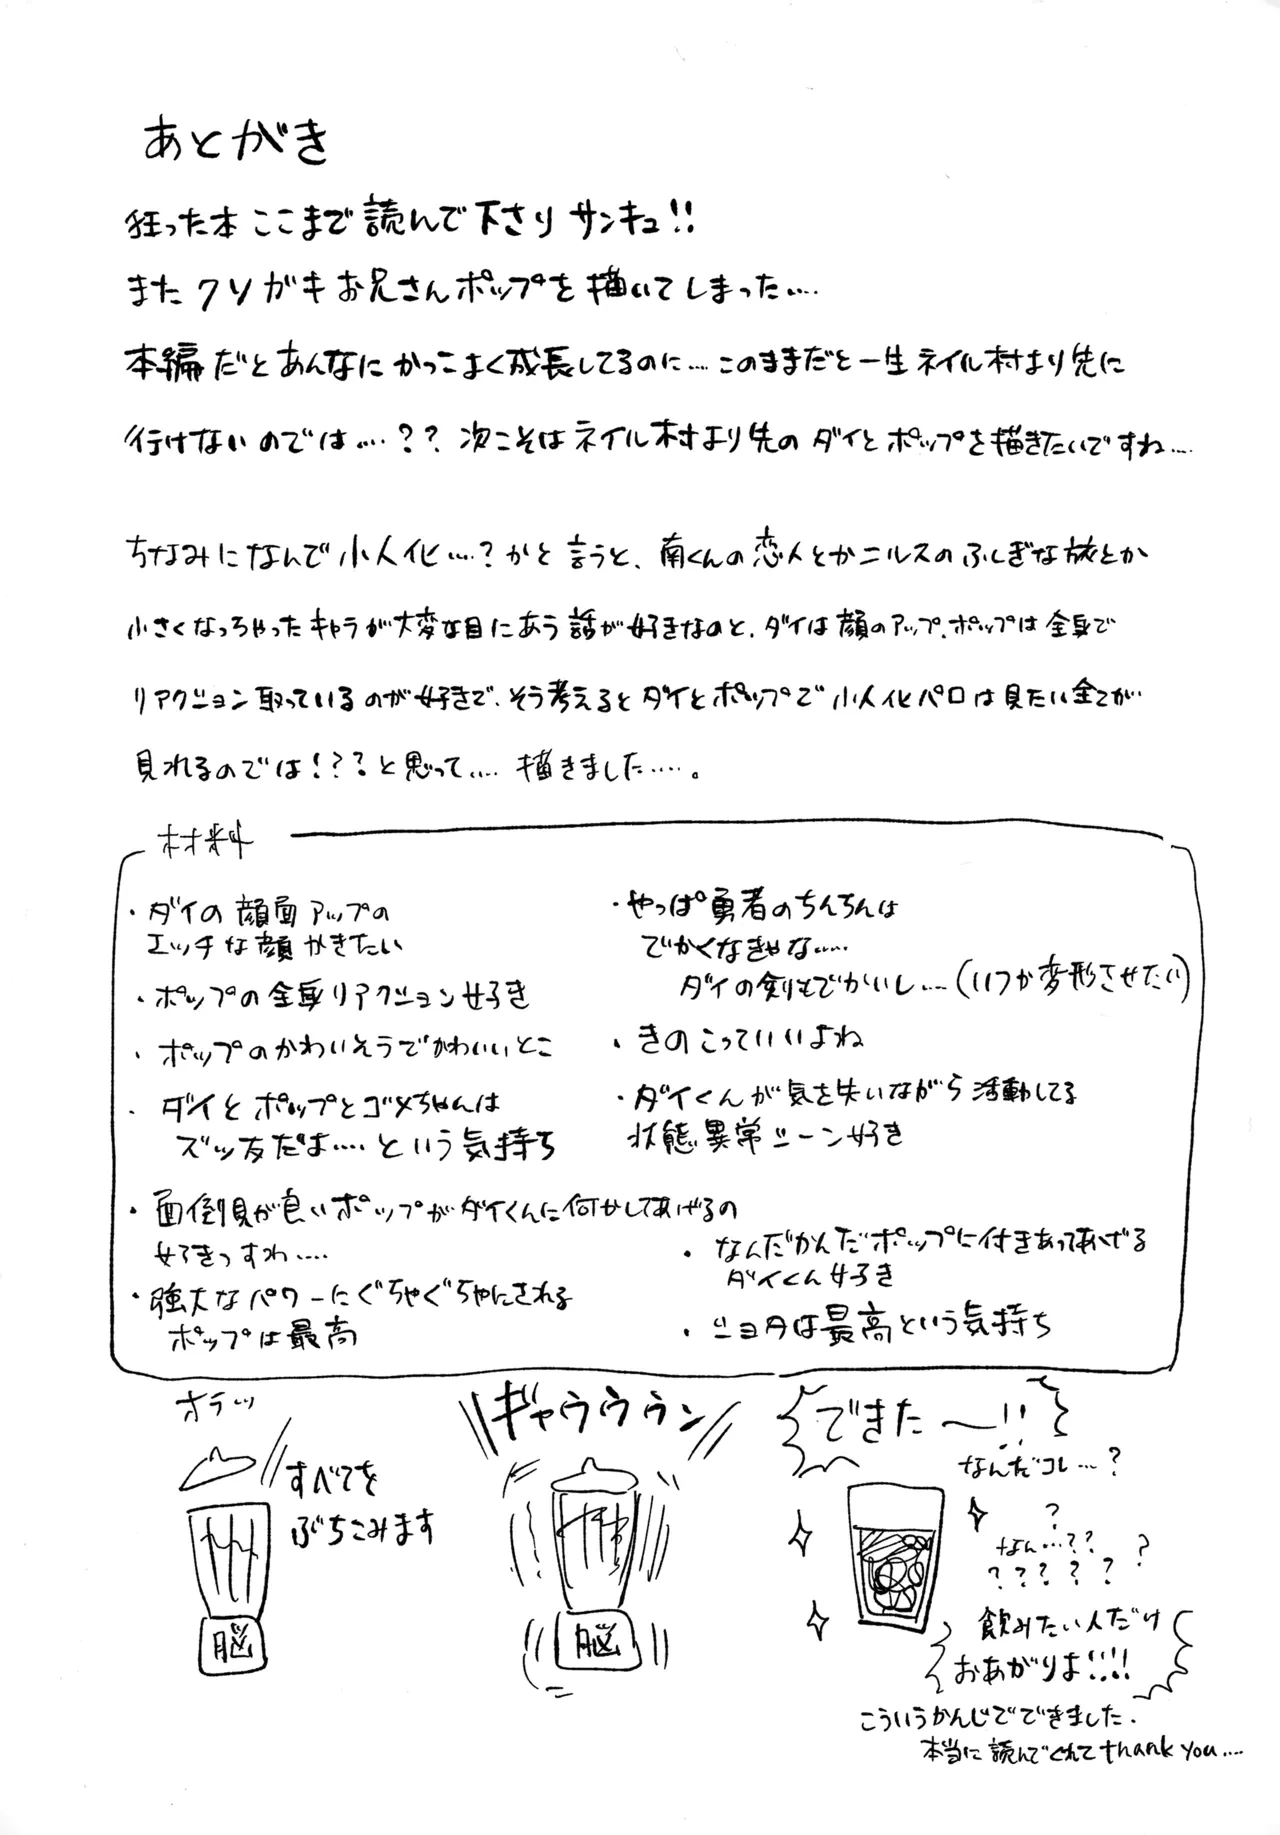 あとがき
狂った本 ここまで読んで下さり サンキュ!!
また クソガキお兄さんポップを描いてしまった….
本編だとあんなに かっこよく成長してるのに….このままだと一生 ネイル村より先に
行けないのでは….?? 次こそは ネイル村より先の ダイとポップを描きたいですね….
ちなみになんで小人化….?かと言うと、南くんの恋人とかニルスのふしぎな旅とか
小さくなっちゃったキャラが大変な目にあう話が好きなのと、ダイは顔のアップ、ポップは全身で
リアクション取っているのが好きで、そう考えるとダイとポップで小人化パロは見たい全てが
見れるのでは!??と思って….. 描きました…..。
材料
・ポップの全身リアクション好き
・ポップのかわいそうでかわいいとこ
・ダイとポップとゴメちゃんは
ズッ友だよ….という気持ち
・面倒見が良いポップがダイくんに何かしてあげるの
好きっすわ….
・ダイくんが気を失いながら活動してる
状態異常シーン好き
・なんだかんだポップに付きあってあげる
ダイくん好き
オラッ
すべてを
ぶちこみます
脳
ギャウウウン
脳
できた〜!!
なんだコレ…?
?
なん…?? ?
?????
飲みたい人だけ
おあがりよ!!!!
こういうかんじでできました.
本当に読んでくれて thank you….